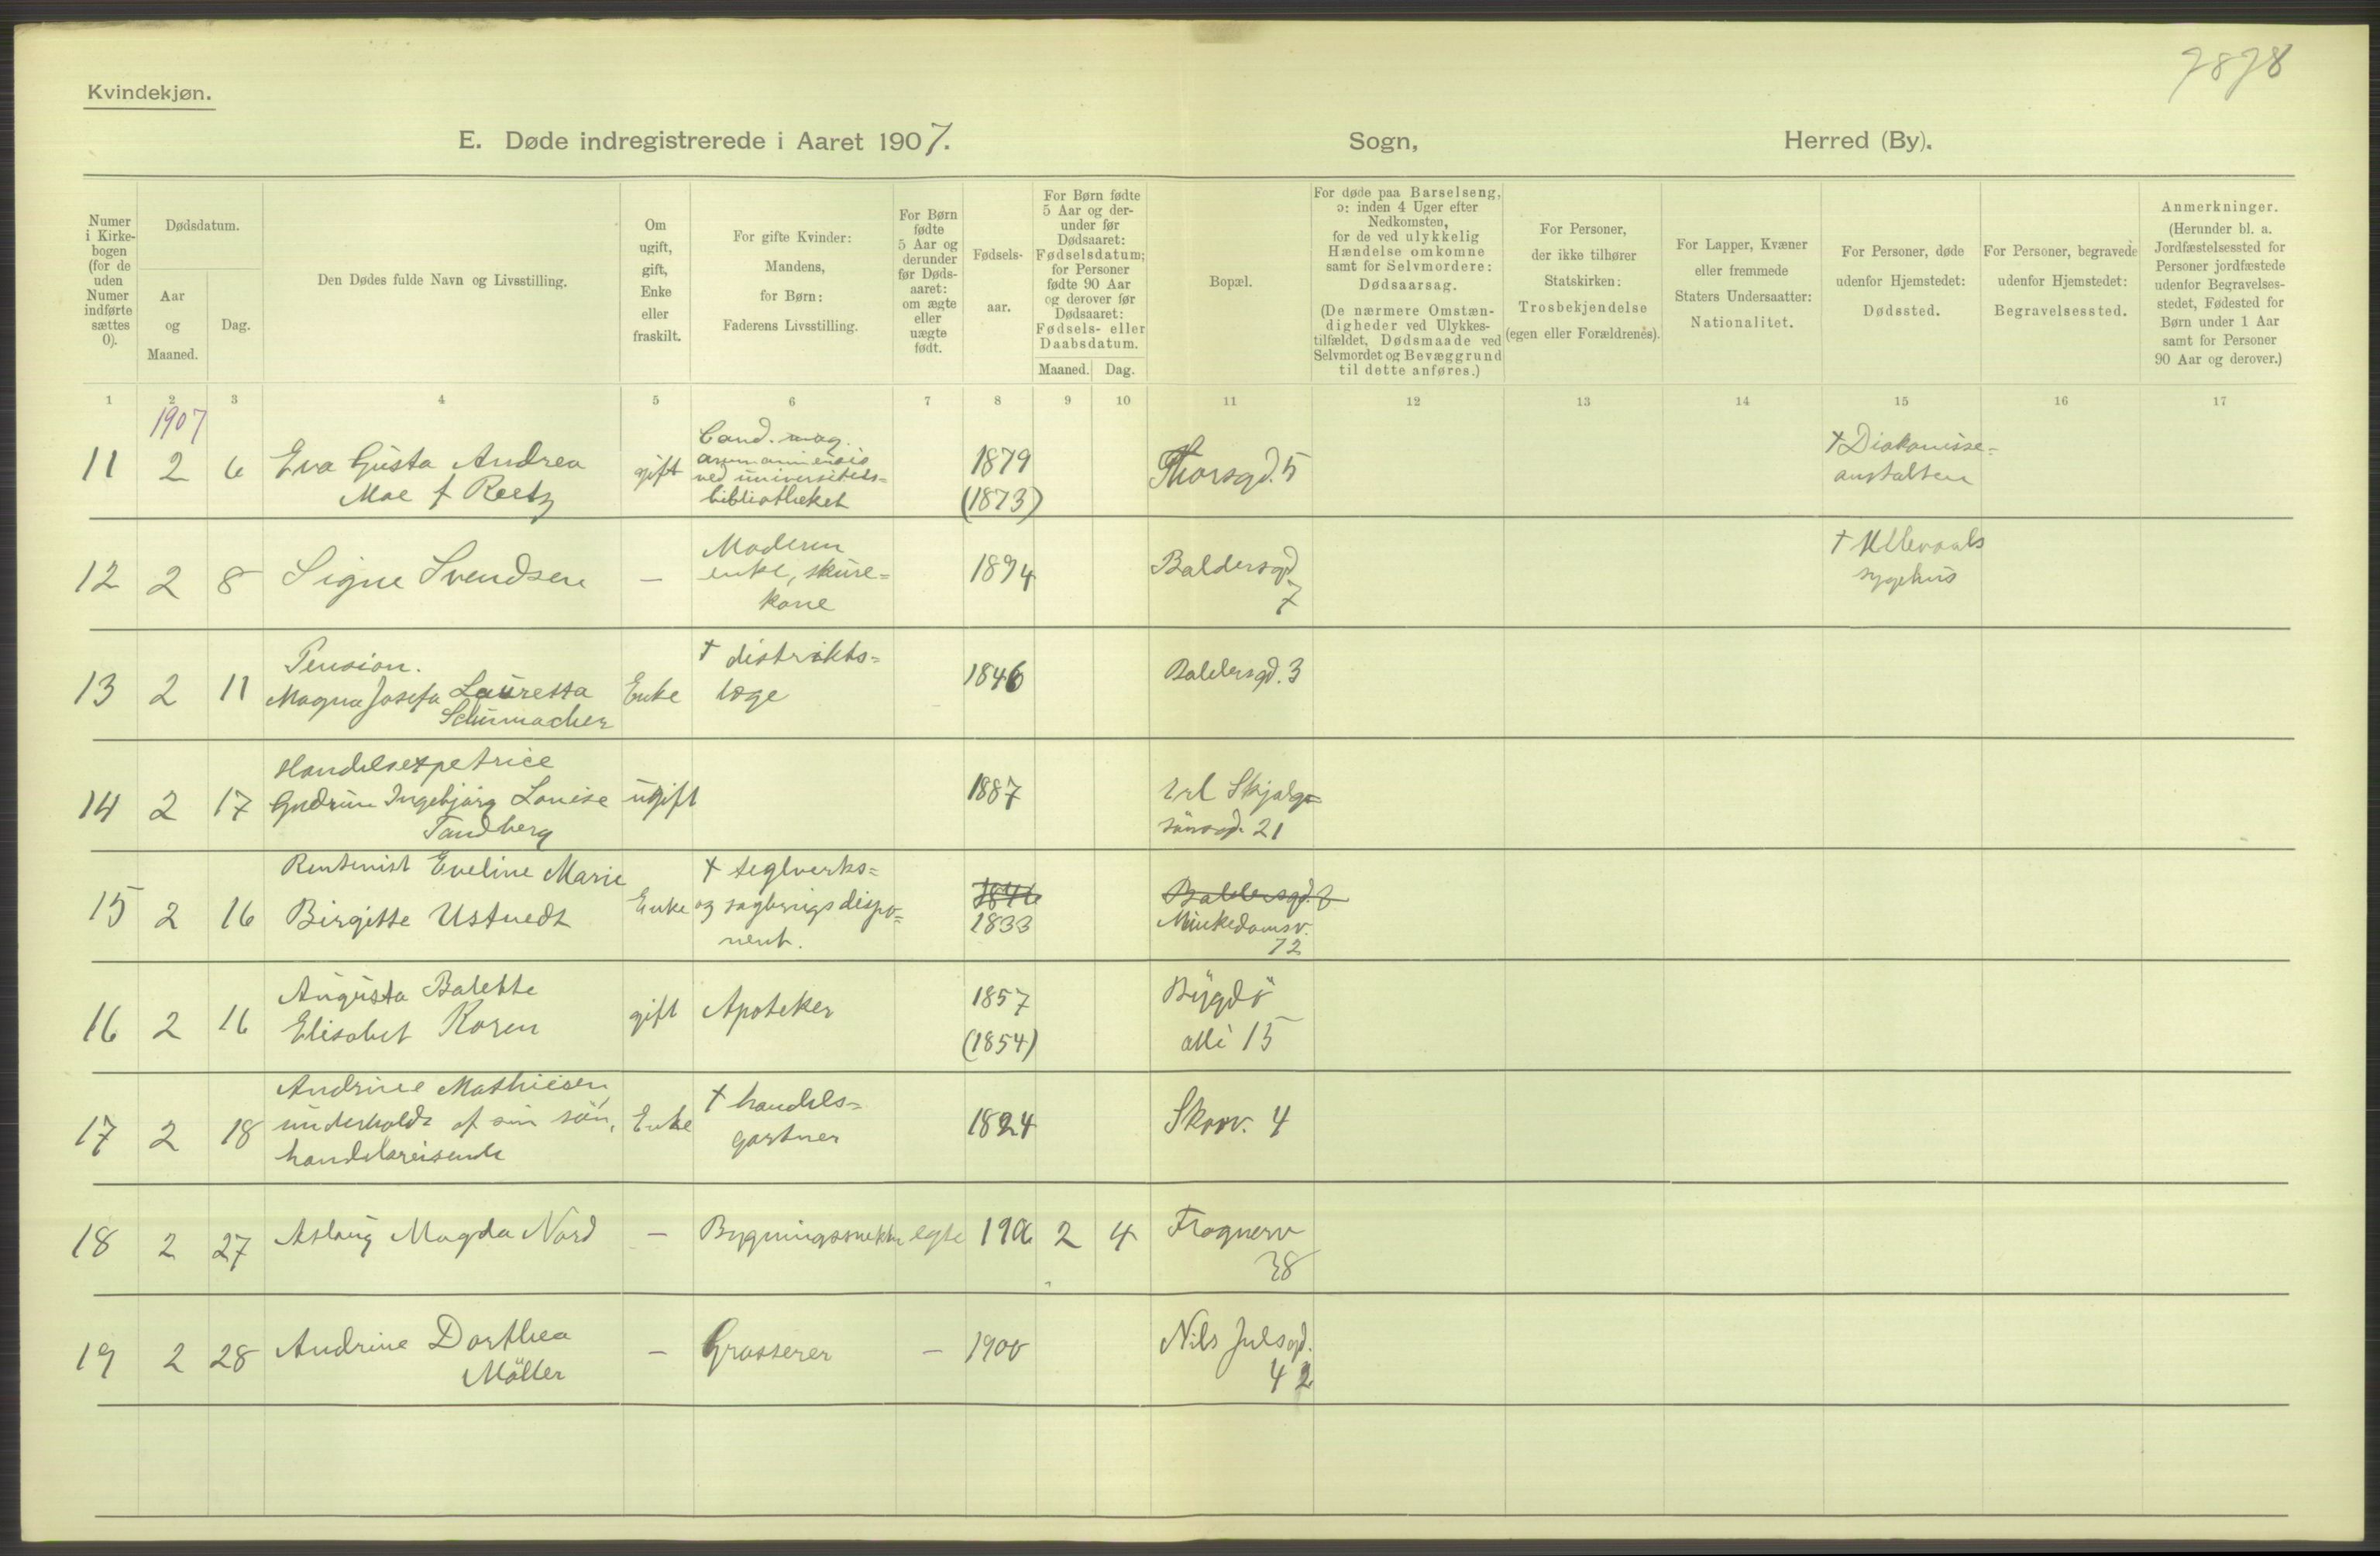 7878
Kvindekjøn.
E. Døde indregistrerede i Aaret 1907. Sogn, Herred (By).
Numer i Kirkebogen (for de uden Numer indførte sættes 0).
Dødsdatum.
Aar og Maaned.
Dag.
Den Dødes fulde Navn og Livsstilling.
Om ugift, gift, Enke eller fraskilt.
For gifte Kvinder: Mandens, for Børn: Faderens Livsstilling.
For Børn fødte 5 Aar og derunder før Dødsaaret: om ægte eller uægte født.
Fødselsaar.
For Børn fødte 5 Aar og derunder før Dødsaaret: Fødselsdatum; for Personer fødte 90 Aar og derover før Dødsaaret: Fødsels- eller Daabsdatum.
Maaned. Dag.
Bopæl.
For døde paa Barselseng, ɔ: inden 4 Uger efter Nedkomsten, for de ved ulykkelig Hændelse omkomne samt for Selvmordere: Dødsaarsag.
(De nærmere Omstændigheder ved Ulykkestilfældet, Dødsmaade ved Selvmordet og Bevæggrund til dette anføres.)
For Personer, der ikke tilhører Statskirken: Trosbekjendelse (egen eller Forældrenes).
For Lapper, Kvæner eller fremmede Staters Undersaatter: Nationalitet.
For Personer, døde udenfor Hjemstedet: Dødssted.
For Personer, begravede udenfor Hjemstedet: Begravelsessted.
Anmerkninger. (Herunder bl. a. Jordfæstelsessted for Personer jordfæstede udenfor Begravelsesstedet, Fødested for Børn under 1 Aar samt for Personer 90 Aar og derover.)
1 2 3 4 5 6 7 8 9 10 11 12 13 14 15 16 17
1907
11 2 6 Eva Gusta Andrea Moe f Reetz gift Cand. mag. ved universitets= bibliotheket 1879 (1873) Thorsgd. 5 † Diakonisse- anstalten
12 2 8 Signe Svendsen — Moderen enke, skure= kone 1894 Baldersgd 7 † Ullevaals sygehus
13 2 11 Pension. Magna Josefa Lauretta Schumacher Enke † distrikts= læge 1846 Baldersgd. 3
14 2 17 Handelsexpetrice Gudrun Ingebjörg Louise Tandberg ugift 1887 Erl Skjalgs= sönsgd. 21
15 2 16 Rentenist Eveline Marie Birgitte Ustvedt Enke † teglverks= og sagbrugsdispo= nent. 1846 1833 Baldersgd. 8 Munkedamsv. 72
16 2 16 Augusta Balette Elisabet Koren gift Apoteker 1857 (1854) Bygdö alle 15
17 2 18 Andrine Mathiesen, underholdt af sin sön, handelsreisende Enke † handels= gartner 1824 Skovv. 4
18 2 27 Aslaug Magda Nord — Bygningssnekker egte 1906 2 4 Frognerv 38
19 2 28 Andrine Dorthea Möller — Grosserer — 1900 Nils Julsgd. 42